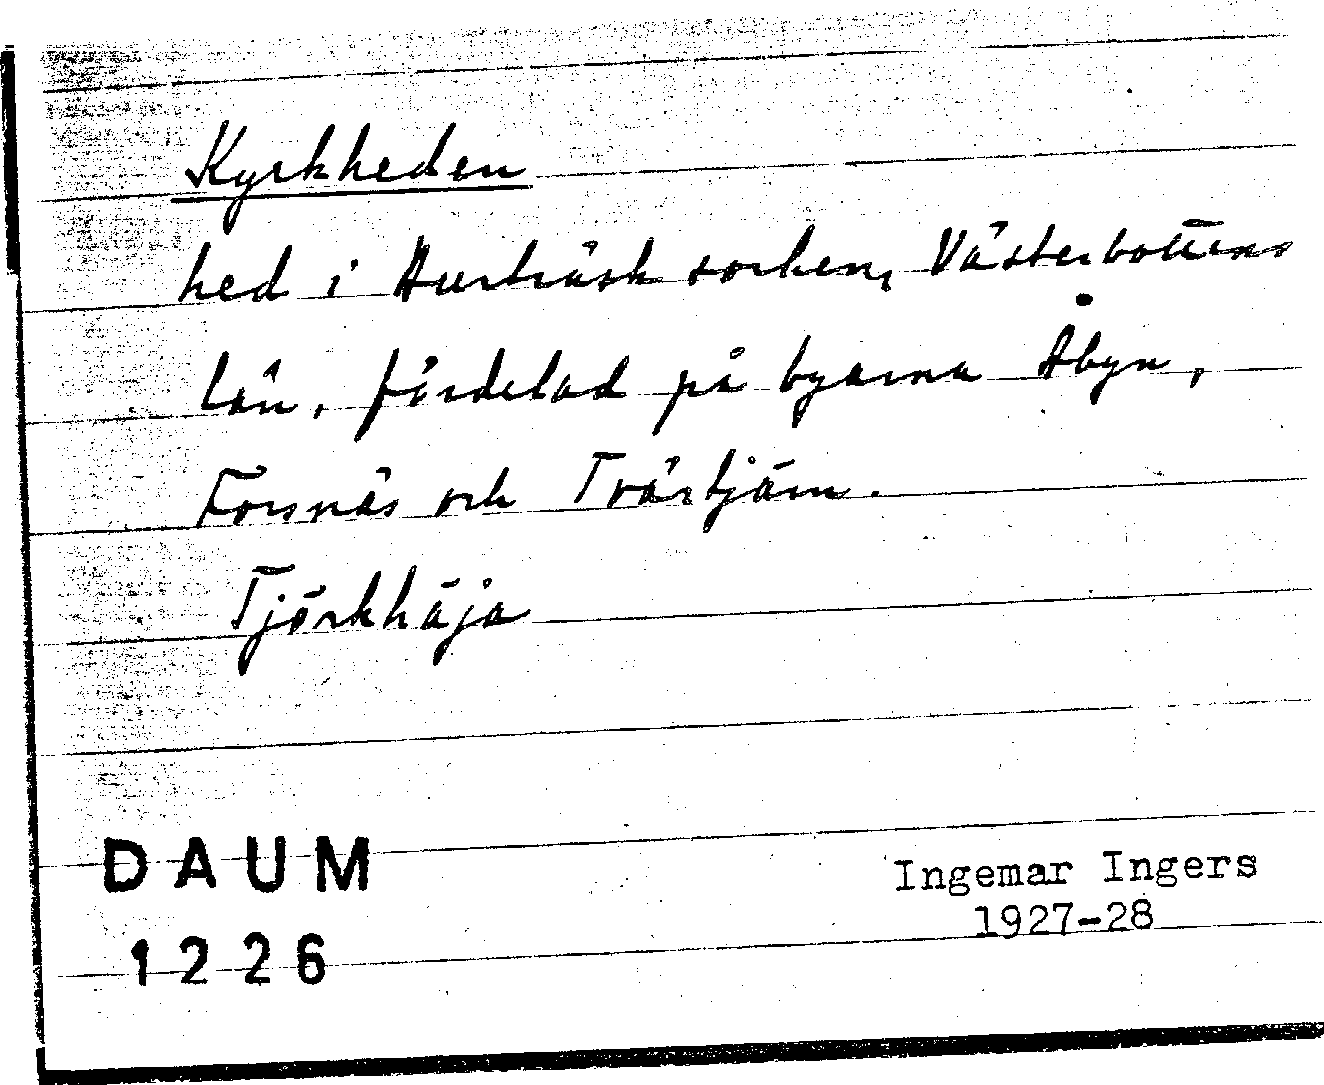 Kyrkheden
hed i Burträsk socken, Västerbottens
län, fördelad på byarna Åbyn,
Forsnäs och Tvärtjärn.
Tjörkhäja
DAUM
1226
Ingemar Ingers
1927-28